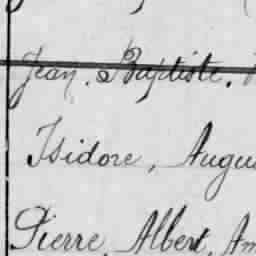 Jean, Baptiste,
Isidore, Augu
Pierre, Albert, Am